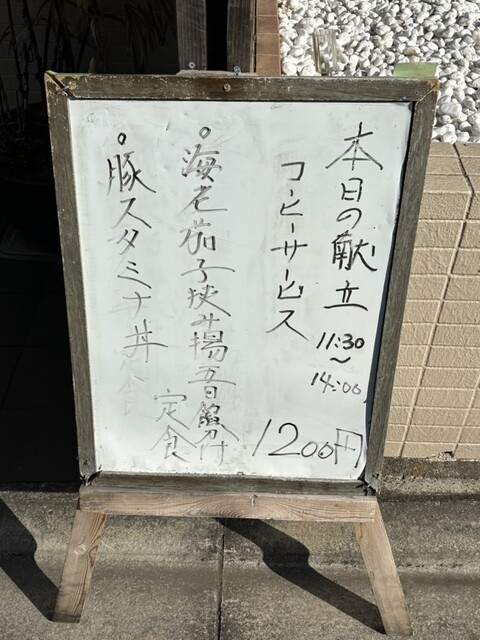 本日の献立
11:30
〜
14:00
コーヒーサービス
1200円
。海老茄子挟み揚五目餡掛
定食
。豚スタミナ丼